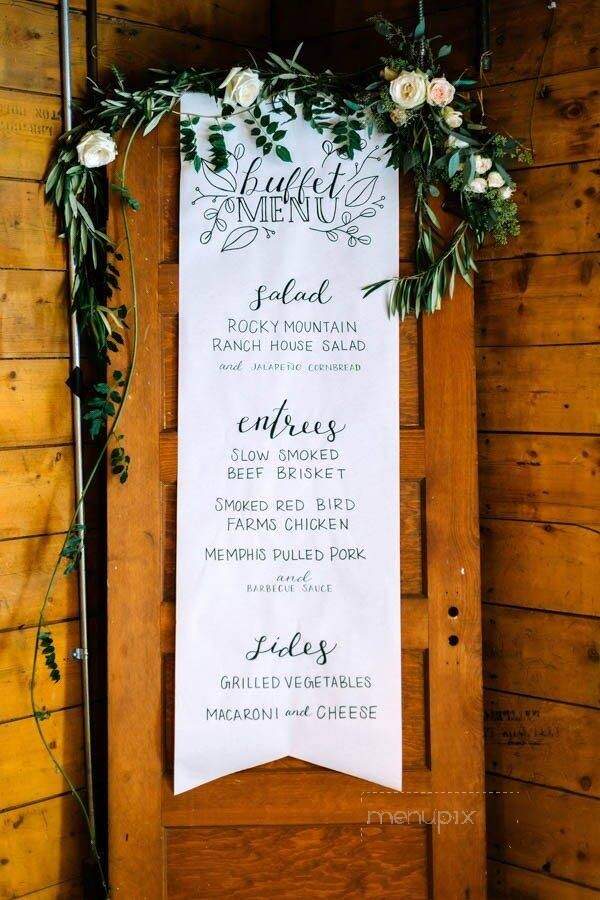 buffet
MENU
salad
ROCKY MOUNTAIN
RANCH HOUSE SALAD
and JALAPEÑO CORNBREAD
entrees
SLOW SMOKED
BEEF BRISKET
SMOKED RED BIRD
FARMS CHICKEN
MEMPHIS PULLED PORK
and
BARBECUE SAUCE
sides
GRILLED VEGETABLES
MACARONI and CHEESE
menupix